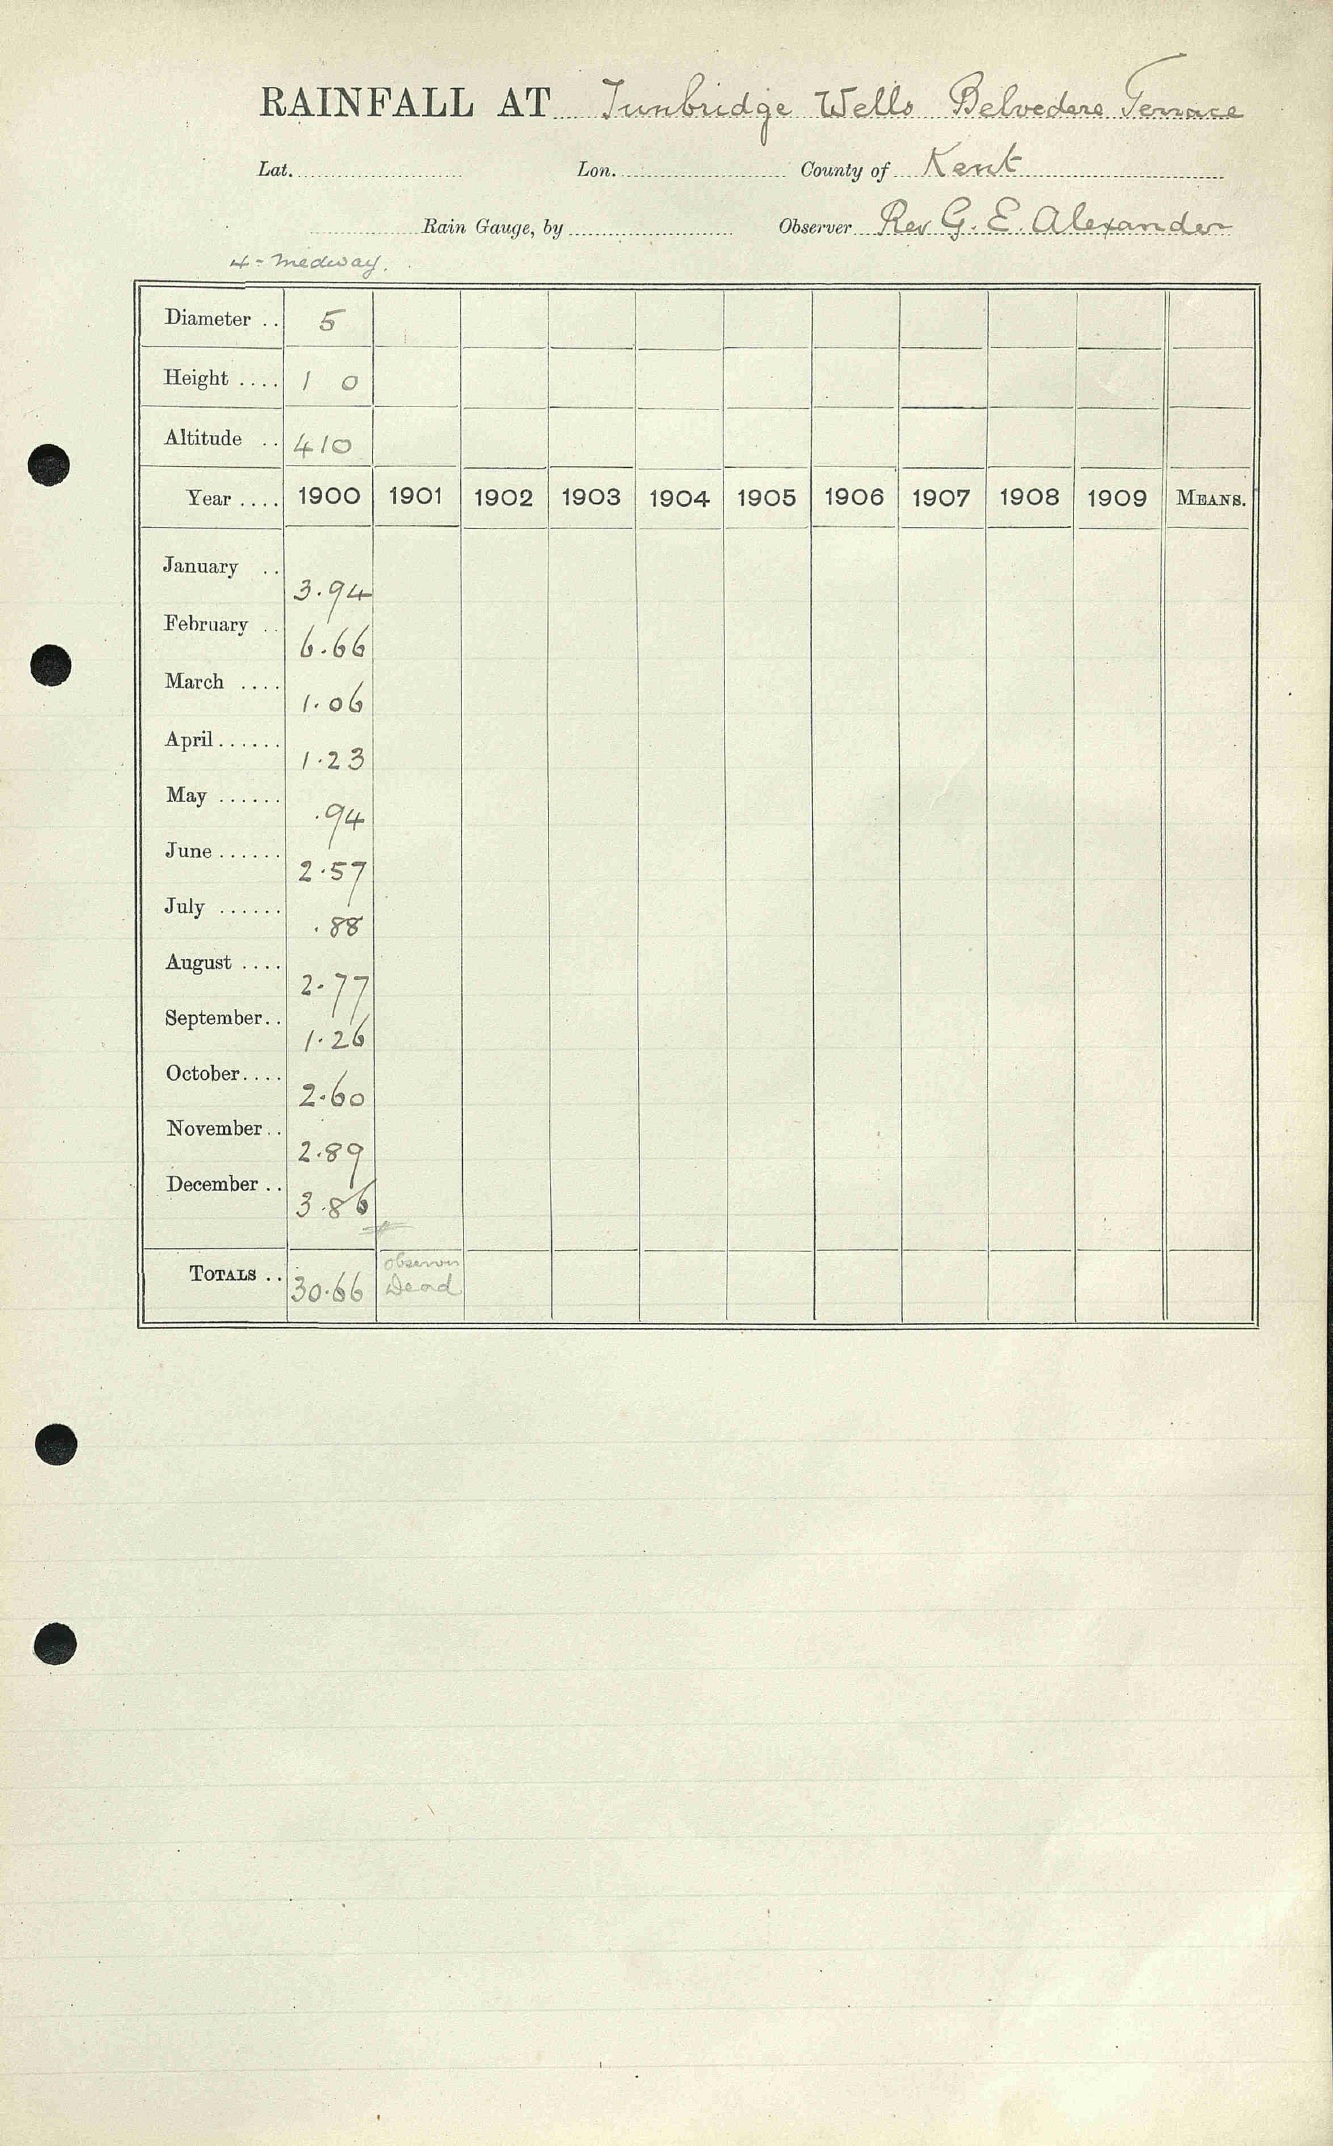 RAINFALL AT Tunbridge Wells Belvedere Terrace
Lat. Lon. County of Kent
Rain Gauge, by Observer Rev G. E. Alexander
4 - Medway.
Diameter .. 5
Height .... 1 0
Altitude .. 410
Year .... 1900 1901 1902 1903 1904 1905 1906 1907 1908 1909 MEANS.
January .. 3.94
February .. 6.66
March .... 1.06
April ...... 1.23
May ...... .94
June ...... 2.57
July ...... .88
August .... 2.77
September.. 1.26
October.... 2.60
November.. 2.89
December .. 3.86
TOTALS .. 30.66 Observer
Dead